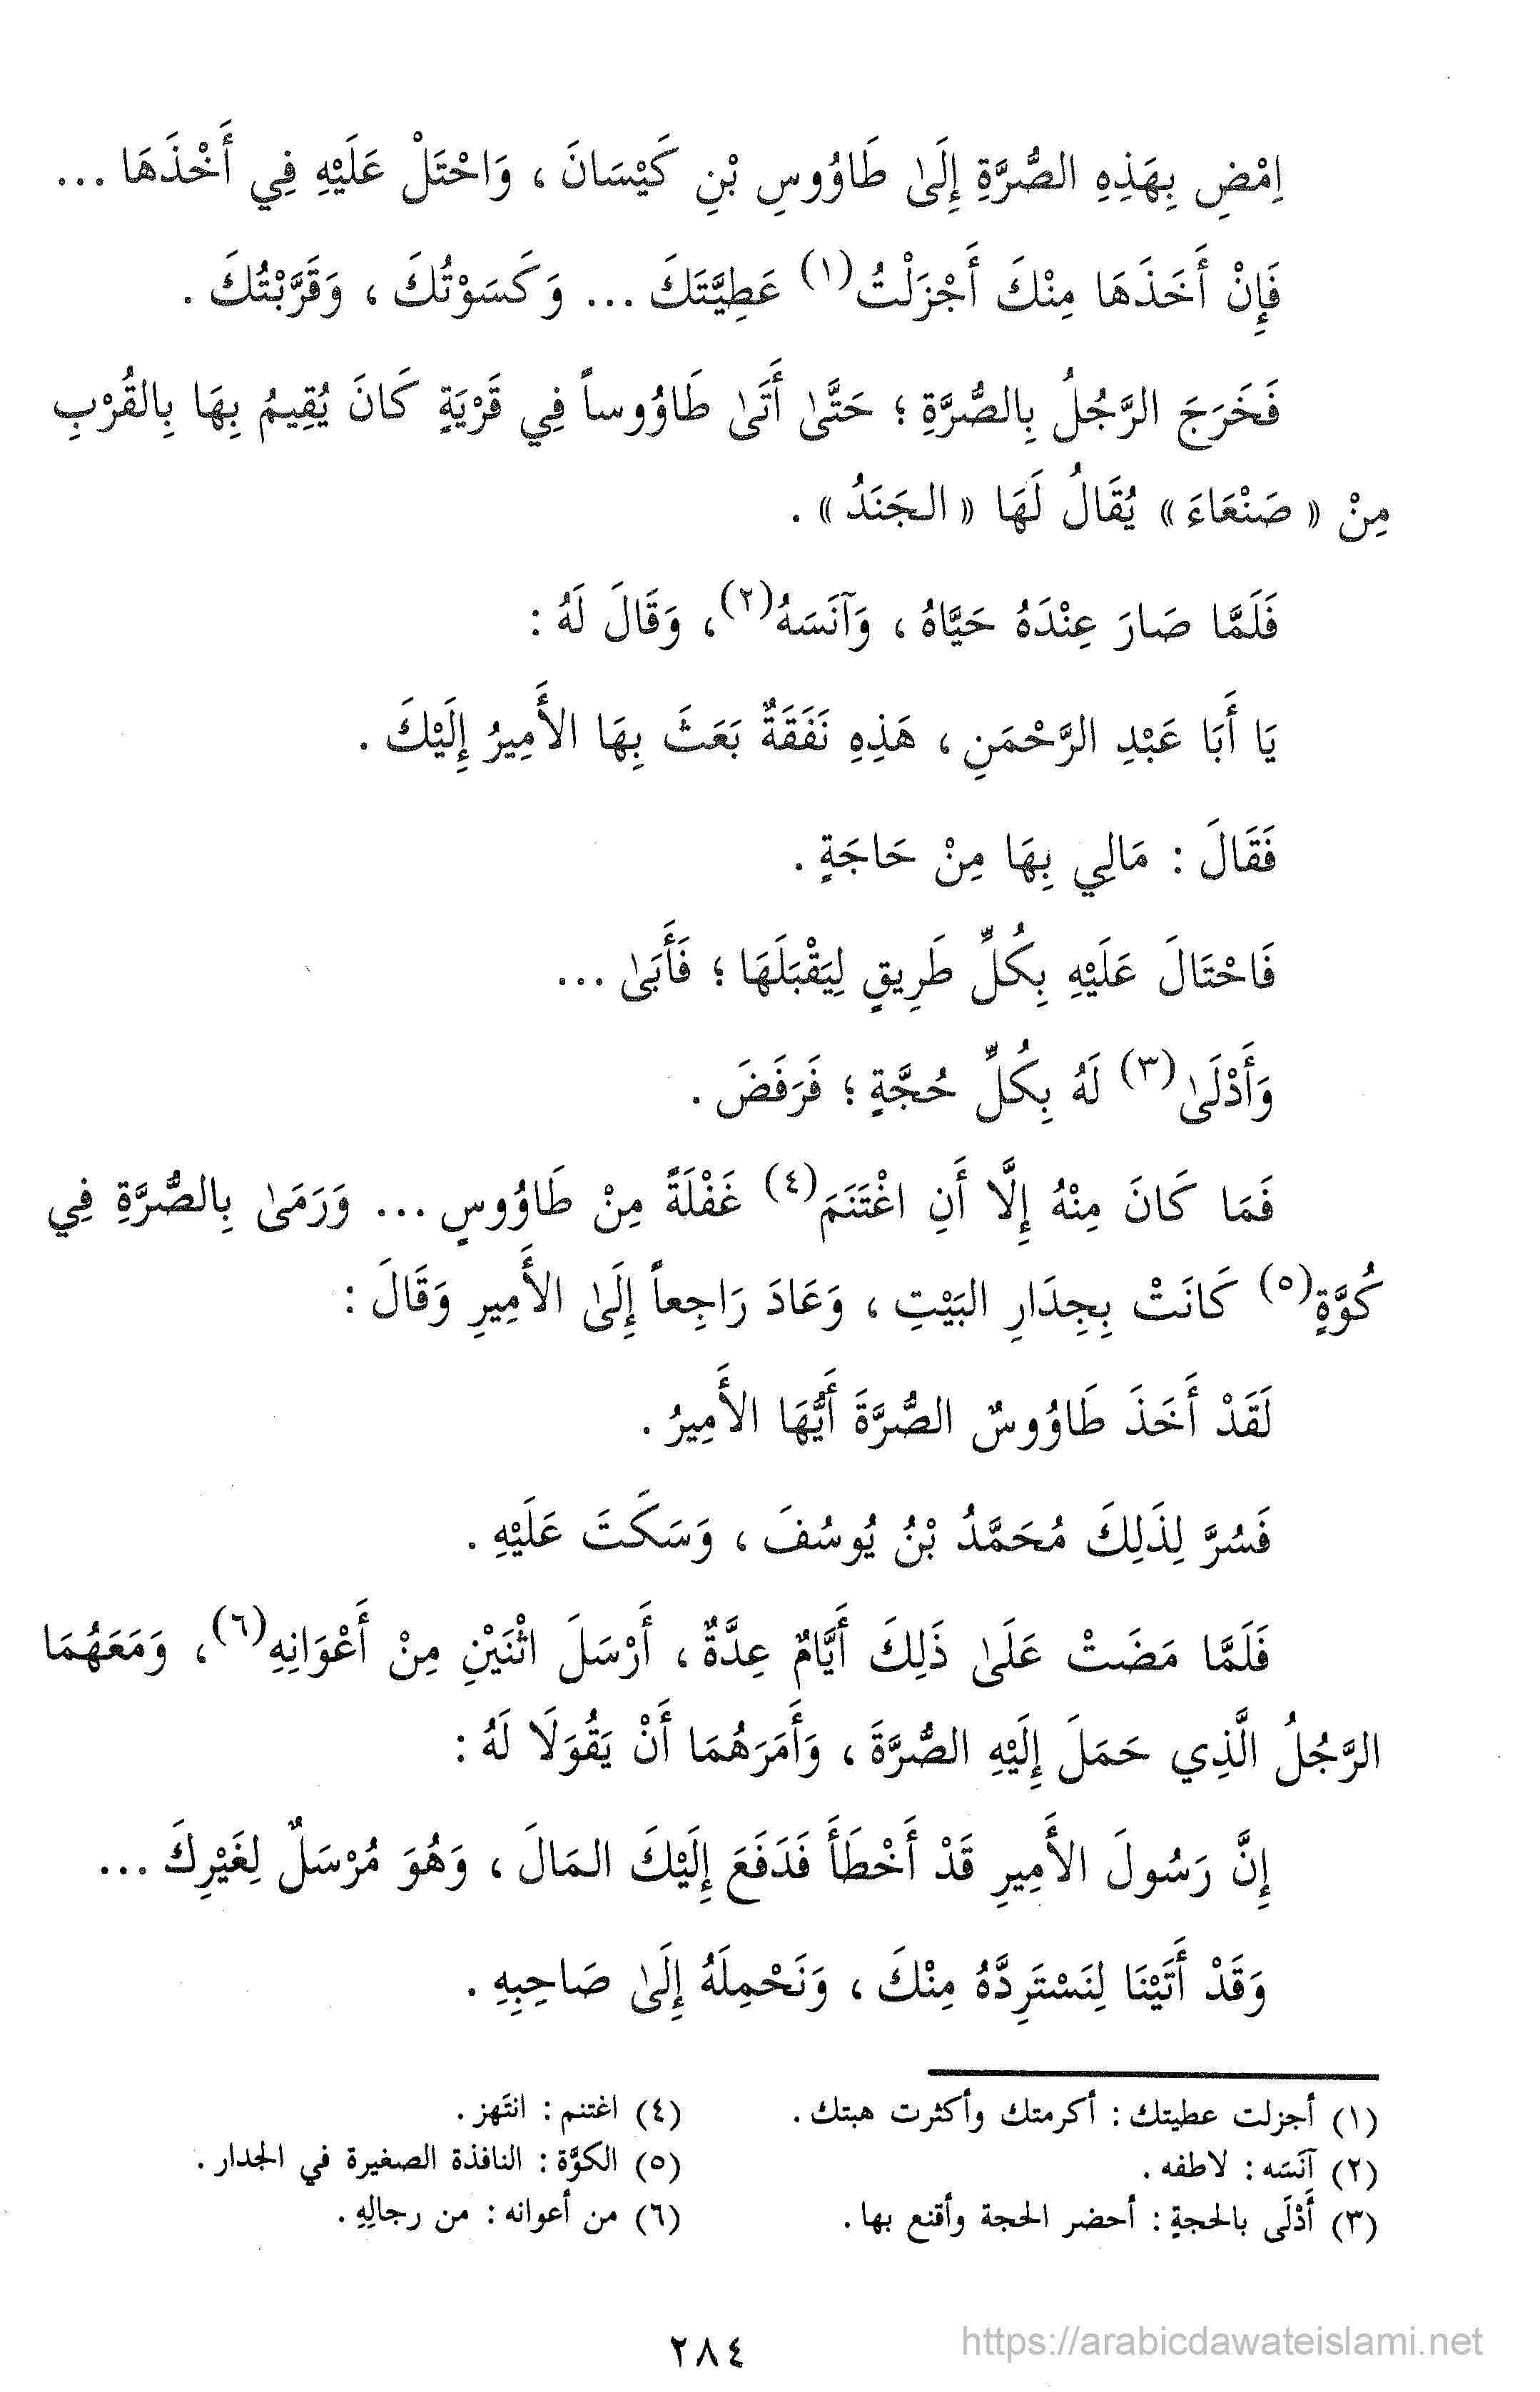 اِمْضِ بِهَذِهِ الصُّرَّةِ إِلَىٰ طَاوُوسِ بْنِ كَيْسَانَ ، وَاحْتَلْ عَلَيْهِ فِي أَخْذَهَا ...
فَإِنْ أَخَذَهَا مِنْكَ أَجْزَلْتُ(١) عَطِيَّتَكَ ... وَكَسَوْتُكَ ، وَقَرَّبْتُكَ .
فَخَرَجَ الرَّجُلُ بِالصُّرَّةِ ؛ حَتَّىٰ أَتَىٰ طَاوُوساً فِي قَرْيَةٍ كَانَ يُقِيمُ بِهَا بِالقُرْبِ
مِنْ « صَنْعَاءَ » يُقَالُ لَهَا « الجَنَدُ » .
فَلَمَّا صَارَ عِنْدَهُ حَيَّاهُ ، وَآنَسَهُ(٢) ، وَقَالَ لَهُ :
يَا أَبَا عَبْدِ الرَّحْمَنِ ، هَذِهِ نَفَقَةٌ بَعَثَ بِهَا الأَمِيرُ إِلَيْكَ .
فَقَالَ : مَالِي بِهَا مِنْ حَاجَةٍ .
فَاحْتَالَ عَلَيْهِ بِكُلِّ طَرِيقٍ لِيَقْبَلَهَا ؛ فَأَبَىٰ ...
وَأَدْلَىٰ(٣) لَهُ بِكُلِّ حُجَّةٍ ؛ فَرَفَضَ .
فَمَا كَانَ مِنْهُ إِلَّا أَنِ اغْتَنَمَ(٤) غَفْلَةً مِنْ طَاوُوسٍ ... وَرَمَىٰ بِالصُّرَّةِ فِي
كُوَّةٍ(٥) كَانَتْ بِجِدَارِ البَيْتِ ، وَعَادَ رَاجِعاً إِلَىٰ الأَمِيرِ وَقَالَ :
لَقَدْ أَخَذَ طَاوُوسٌ الصُّرَّةَ أَيُّهَا الأَمِيرُ .
فَسُرَّ لِذَلِكَ مُحَمَّدُ بْنُ يُوسُفَ ، وَسَكَتَ عَلَيْهِ .
فَلَمَّا مَضَتْ عَلَىٰ ذَلِكَ أَيَّامٌ عِدَّةٌ ، أَرْسَلَ اثْنَيْنِ مِنْ أَعْوَانِهِ(٦) ، وَمَعَهُمَا
الرَّجُلُ الَّذِي حَمَلَ إِلَيْهِ الصُّرَّةَ ، وَأَمَرَهُمَا أَنْ يَقُولَا لَهُ :
إِنَّ رَسُولَ الأَمِيرِ قَدْ أَخْطَأَ فَدَفَعَ إِلَيْكَ المَالَ ، وَهُوَ مُرْسَلٌ لِغَيْرِكَ ...
وَقَدْ أَتَيْنَا لِنَسْتَرِدَّهُ مِنْكَ ، وَنَحْمِلَهُ إِلَىٰ صَاحِبِهِ .
(١) أجزلت عطيتك : أكرمتك وأكثرت هبتك .
(٢) آنَسَه : لاطفه .
(٣) أَدْلَى بالحجةِ : أحضر الحجة وأقنع بها .
(٤) اغتنم : انتَهز .
(٥) الكوَّة : النافذة الصغيرة في الجدار .
(٦) من أعوانه : من رجالِهِ .
٢٨٤
https://arabicdawateislami.net